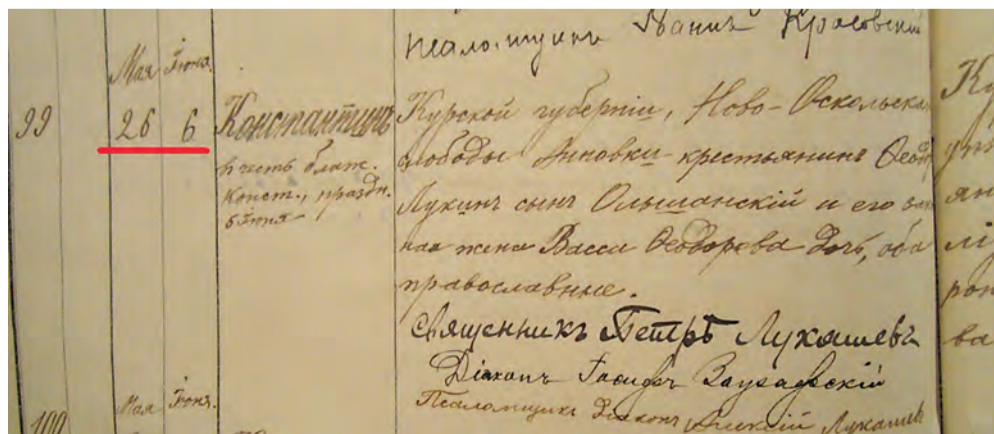 псаломщикъ Іванъ Красовскій
Мая Іюня.
99 26 6 Константинъ
в честь блаж.
Конст., праздн.
5 Іюня
Курской губерніи, Ново-Оскольска
слободы Анновки крестьянинъ Ѳеод
Лукинъ сынъ Ольшанскій и его зак
ная жена Васса Ѳеодорова дочь, оба
православные.
Священникъ Петръ Лукашевъ
Діаконъ Іосифъ
Псаломщикъ Діаконъ Алексій Лукашев
100 Мая Іюня.